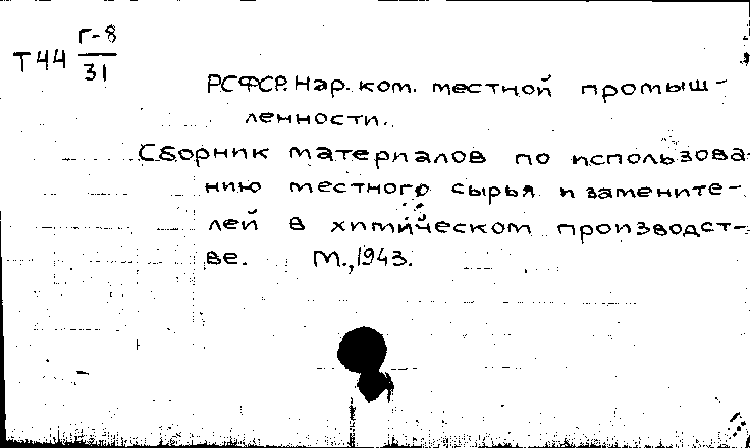 Т44 Г-8
31
РСФСР. Нар. ком. местной промыш-
ленности.
Сборник материалов по использова
нию местного сырья и замените-
лей в химическом производст-
ве. М., 1943.